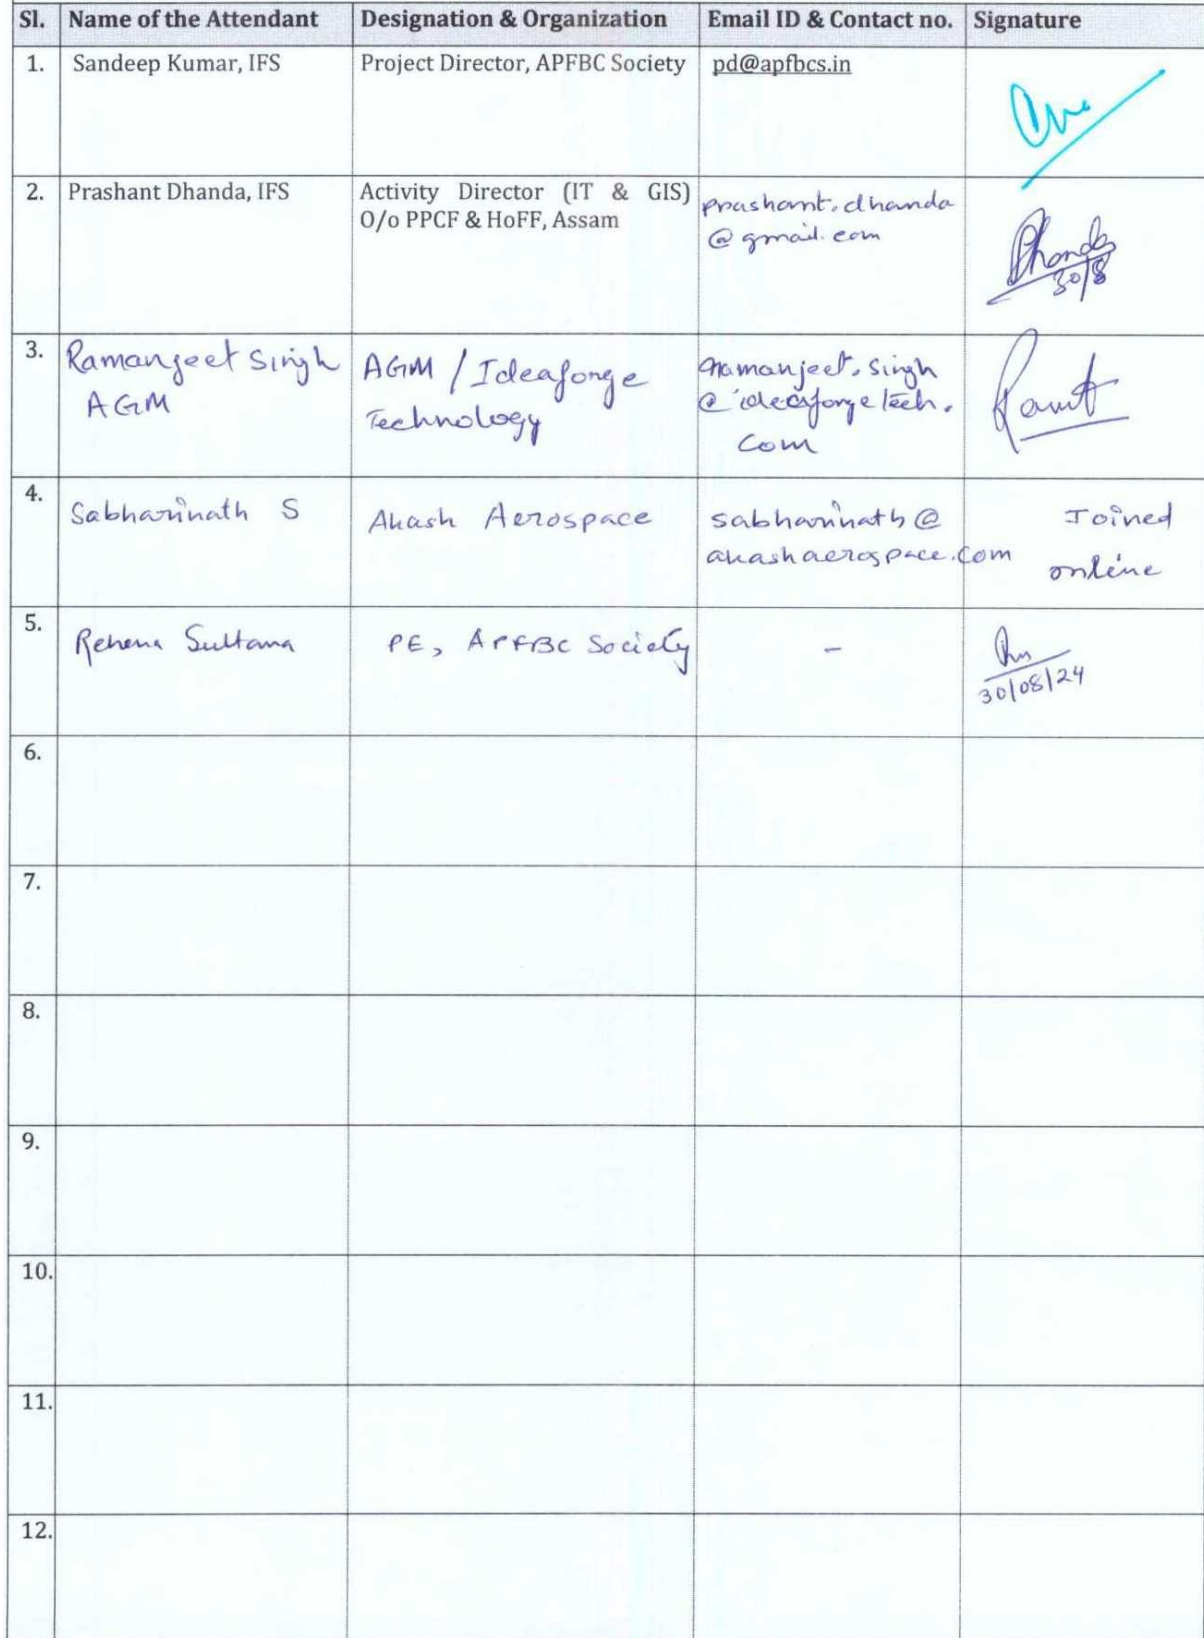 Sl. Name of the Attendant Designation & Organization Email ID & Contact no. Signature
1. Sandeep Kumar, IFS Project Director, APFBC Society pd@apfbcs.in
2. Prashant Dhanda, IFS Activity Director (IT & GIS) prashant.dhanda
O/o PPCF & HoFF, Assam @gmail.com
Dhanda
30/8
3. Ramanjeet Singh AGM / Ideaforge ramanjeet.singh
AGM Technology @ideaforgetech.
com
4. Sabharinath S Akash Aerospace sabharinath@ Joined
akashaerospace.com online
5. Rehena Sultana PE, APFBC Society -
30/08/24
6.
7.
8.
9.
10.
11.
12.